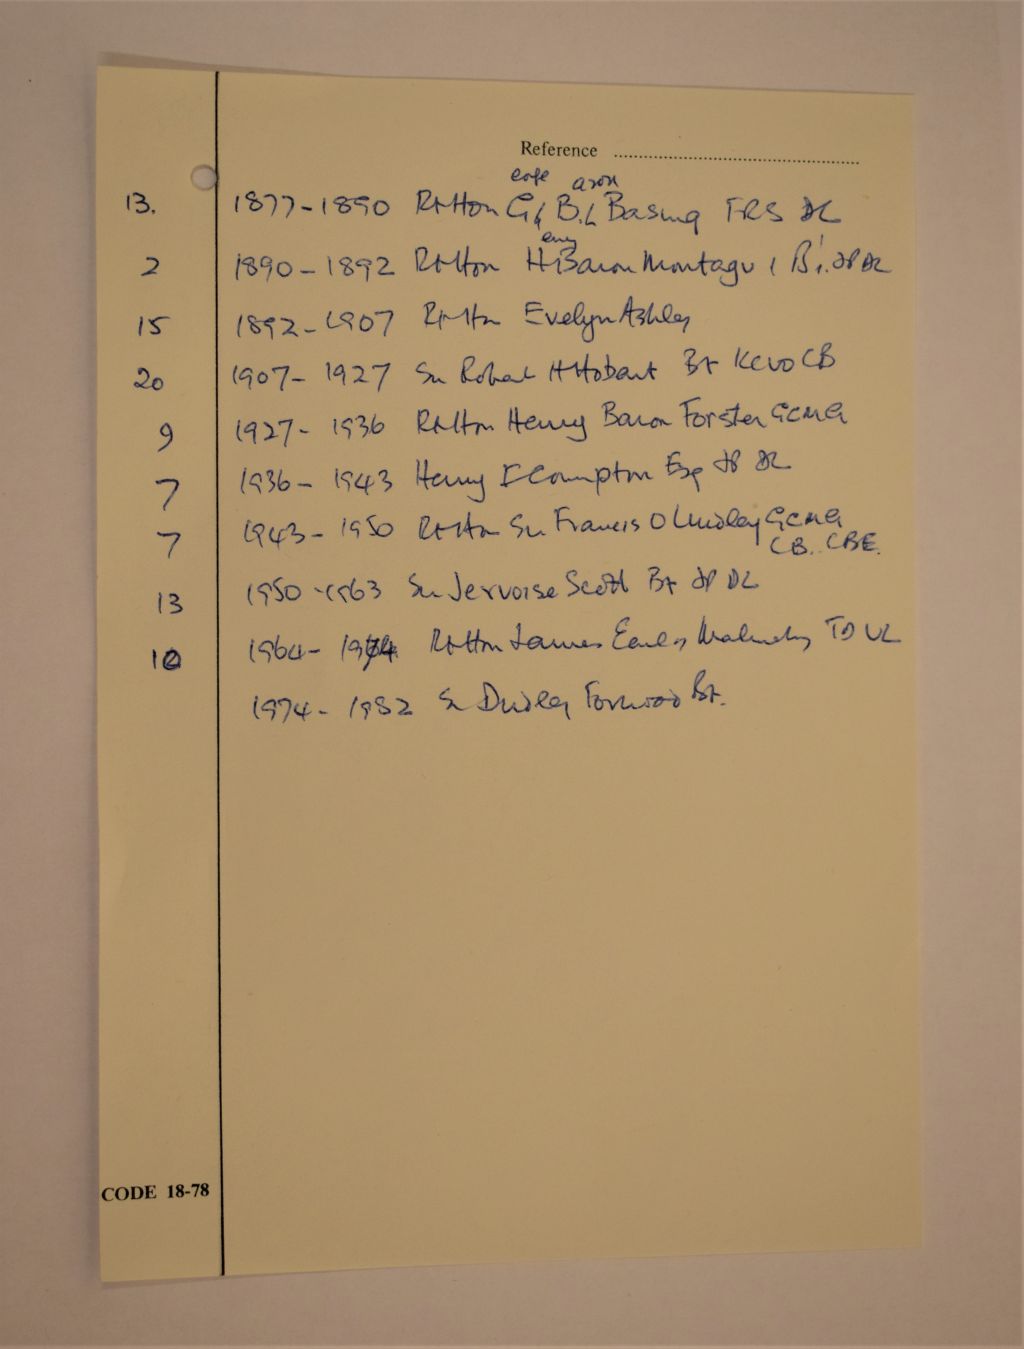 Reference
eorge aron
13. 1877-1890 Rt Hon G, B, Basing FRS DL
enry
2 1890-1892 Rt Hon H Baron Montagu 1 B. JP DL
15 1892-1907 Rt Hn Evelyn Ashley
20 1907-1927 Sir Robert H Hobart Bt KCVO CB
9 1927-1936 Rt Hon Henry Baron Forster GCMG
7 1936-1943 Henry F Compton Esq JP DL
7 1943-1950 Rt Hon Sir Francis O Lindley GCMG
CB. CBE.
13 1950-1963 Sir Jervoise Scott Bt JP DL
10 1964-1974 Rt Hon James Earl of Malmesbury TD VL
1974-1982 Sir Dudley Forwood Bt.
CODE 18-78